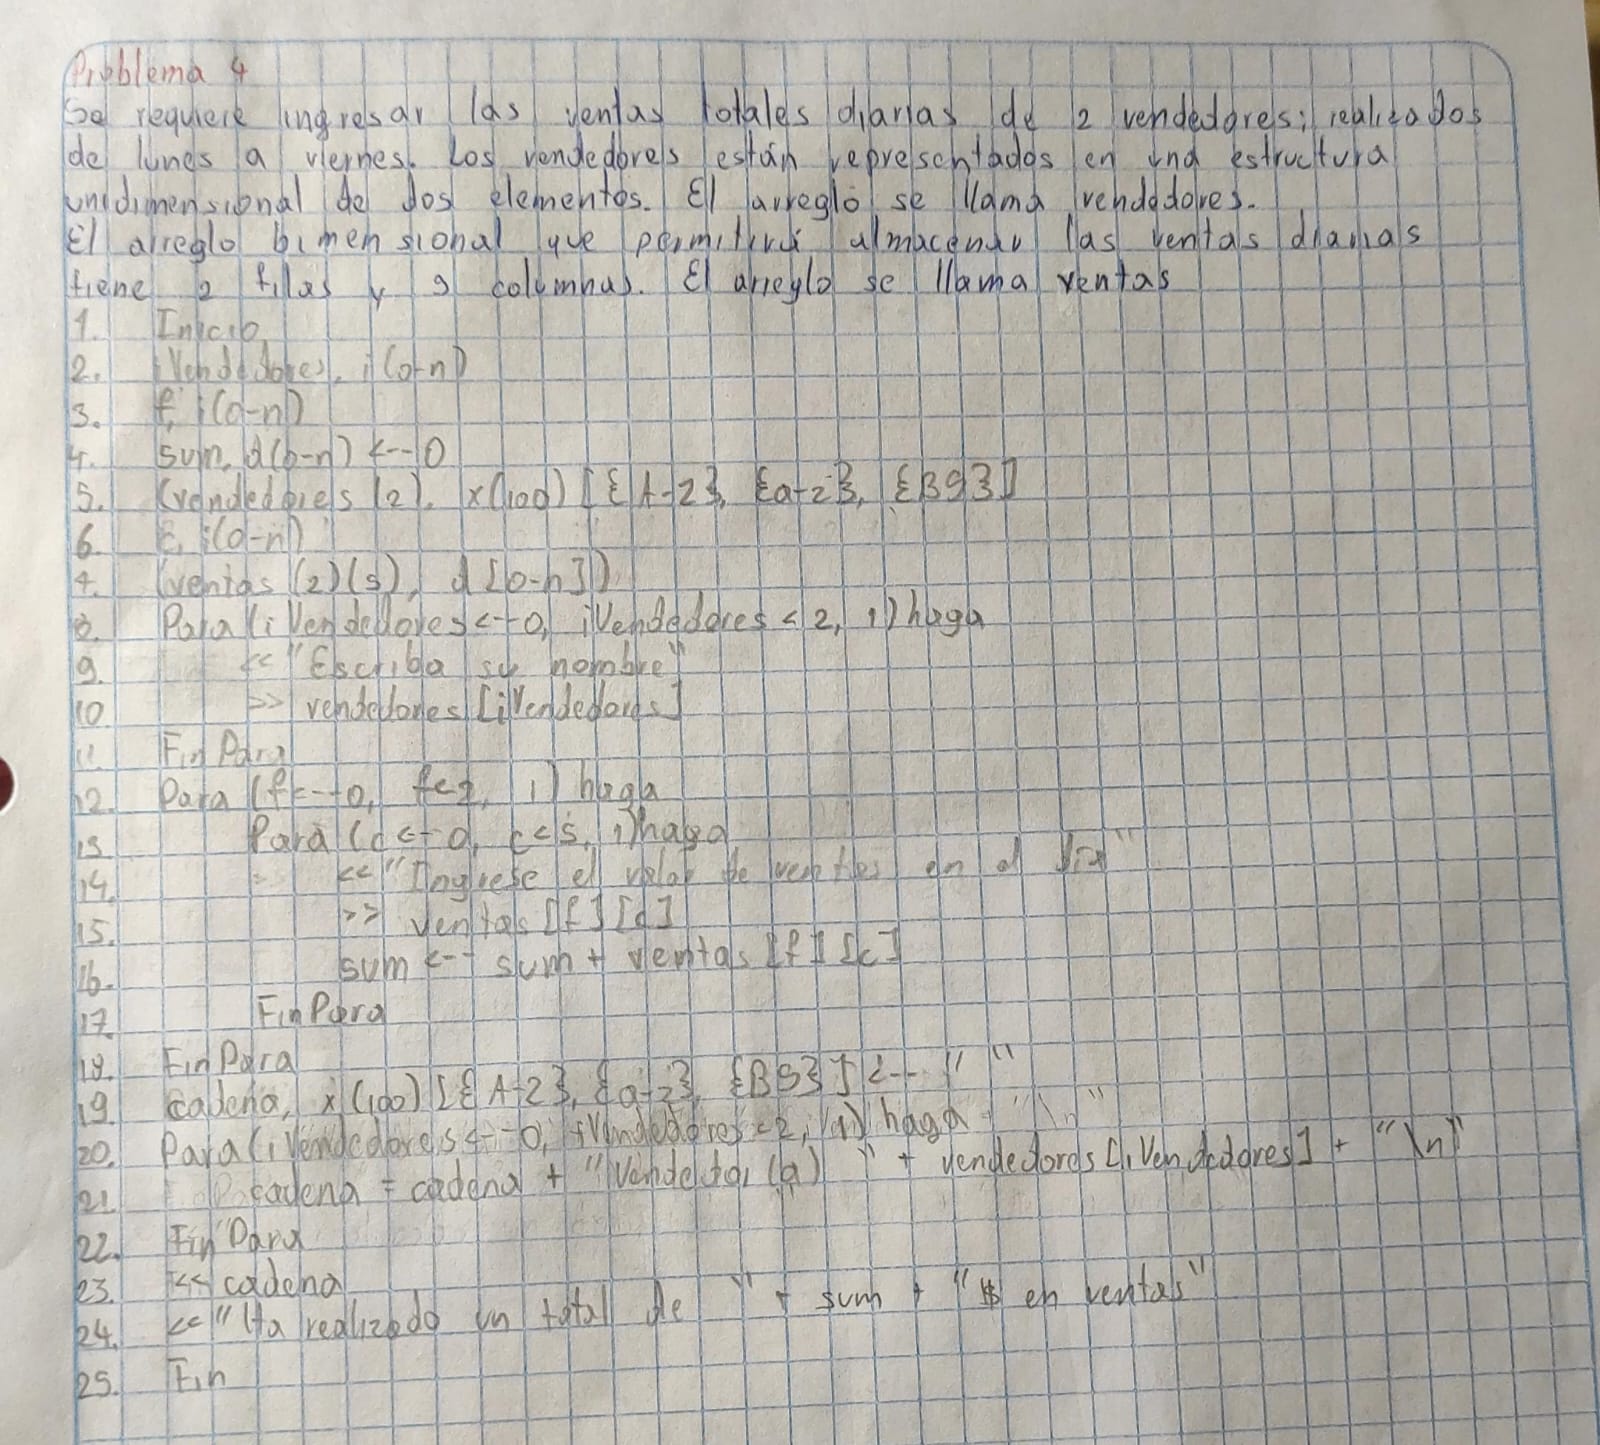 Problema 4
Se requiere ingresar las ventas totales diarias de 2 vendedores; realizados
de lunes a viernes. Los vendedores están representados en una estructura
unidimensional de dos elementos. El arreglo se llama vendedores.
El arreglo bimensional que permitirá almacenar las ventas diarias
tiene 2 filas y 5 columnas. El arreglo se llama ventas
1. Inicio
2. iVendedores, i(0-n)
3. f, i(0-n)
4. sum, d(0-n) <-- 0
5. (vendedores (2), x(100) [{A-Z}, {a-z}, {BS}]
6. c, i(0-n)
7. (ventas (2)(5), d[0-n])
8. Para (iVendedores <-- 0, iVendedores < 2, 1) haga
9. << "Escriba su nombre"
10 >> vendedores [iVendedores]
11. FinPara
12. Para (f <-- 0, f<2, 1) haga
13 Para (c <-- 0, c<5, 1) haga
14. << "Ingrese el valor de ventas en el día"
15. >> ventas [f] [c]
16. sum <-- sum + ventas [f] [c]
17. FinPara
18. FinPara
19. cadena, x(100) [{A-Z}, {a-z}, {BS}] <-- " "
20. Para (iVendedores <-- 0, iVendedores < 2, 1) haga "\n"
21. cadena = cadena + "Vendedor (a) " + vendedores [iVendedores] + "\n"
22. FinPara
23. << cadena
24. << "Ha realizado un total de " + sum + "$ en ventas"
25. Fin